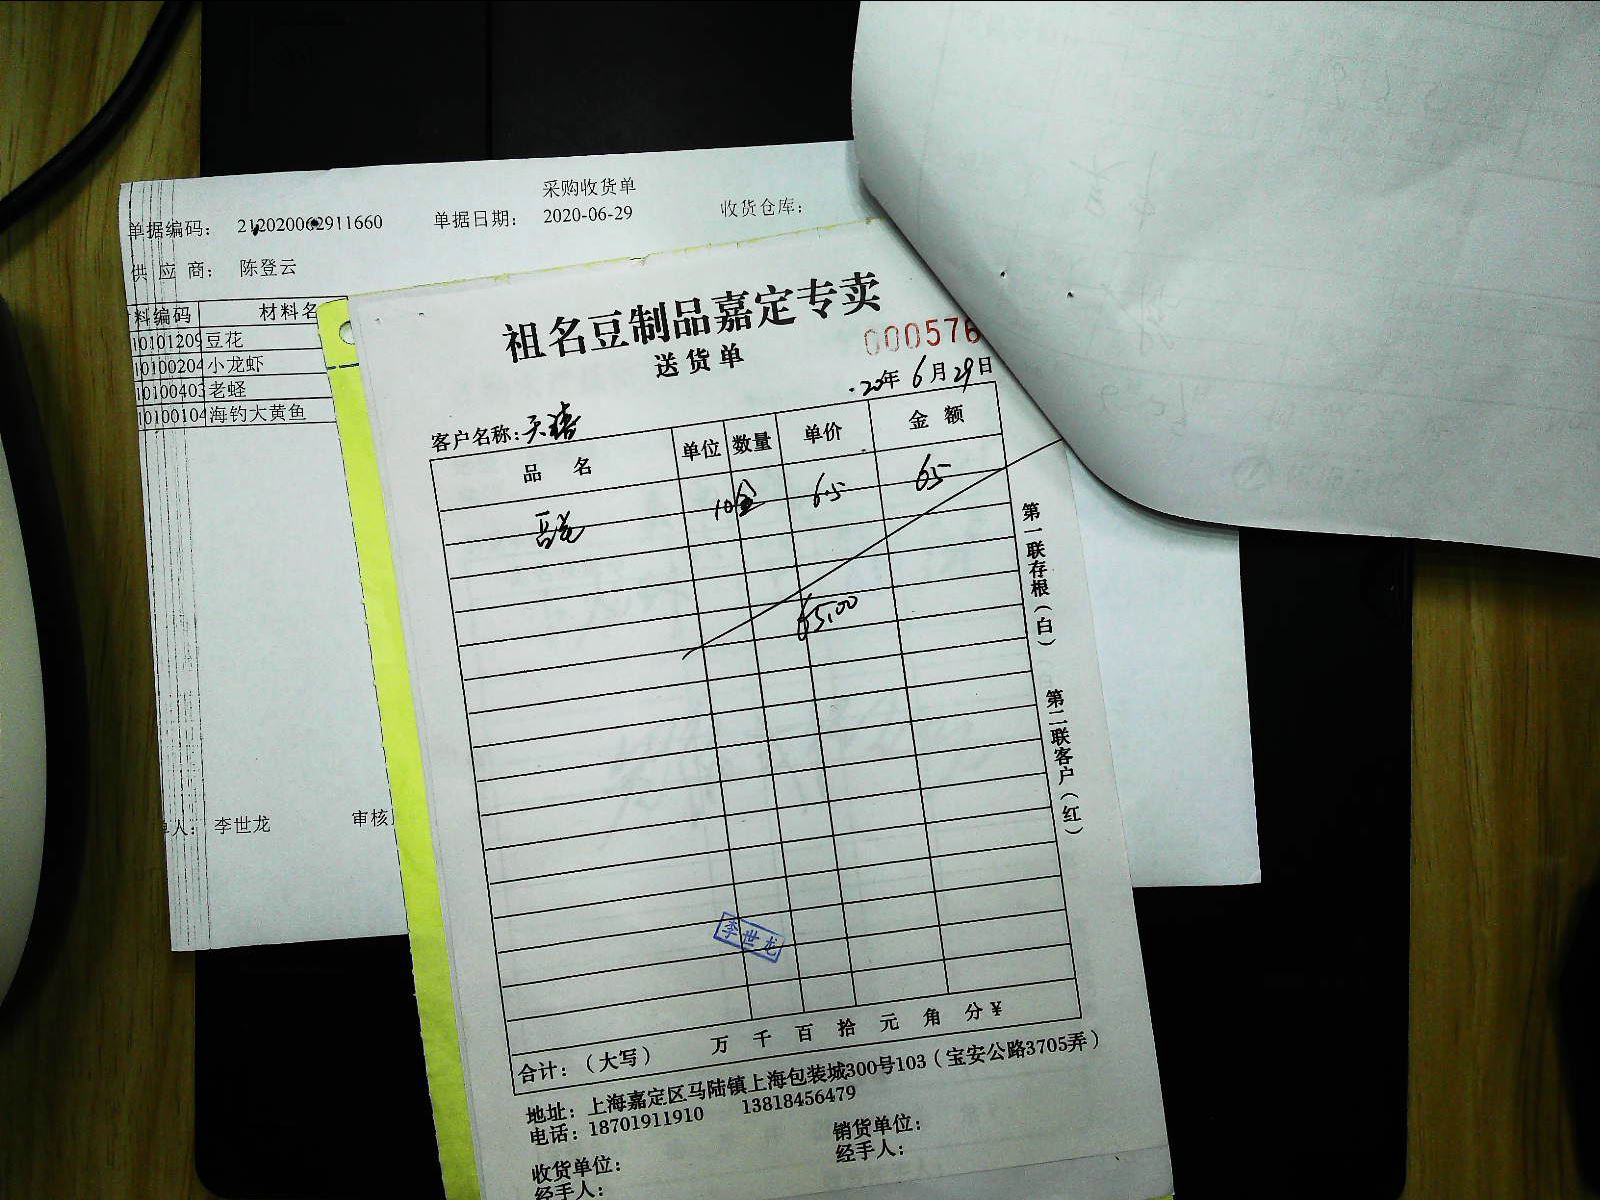 采购收货单
单据编码： 212020062911660 单据日期： 2020-06-29 收货仓库：
供应商： 陈登云
料编码 材料名
10101209 豆花
10100204 小龙虾
10100403 老蛏
10100104 海钓大黄鱼
单人： 李世龙 审核
祖名豆制品嘉定专卖
000576
送货单
20年6月29日
客户名称：天禧
品名 单位 数量 单价 金额
豆花 10盒 6.5 65
65.00
第一联存根（白）
第二联客户（红）
李世龙
合计：（大写） 万 千 百 拾 元 角 分 ¥
地址：上海嘉定区马陆镇上海包装城300号103（宝安公路3705弄）
电话：18701911910 13818456479
收货单位： 销货单位：
经手人： 经手人：